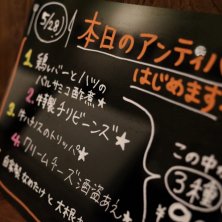 5/28
本日のアンティパ
はじめます
1. 鶏レバーとハツの
バルサミコ酢煮★
2. 牛特製チリビーンズ★
3. 牛ハチノスのトリッパ★
4. クリームチーズ酒盗あえ★
自家製なめたけと大根
この中か
3種
¥